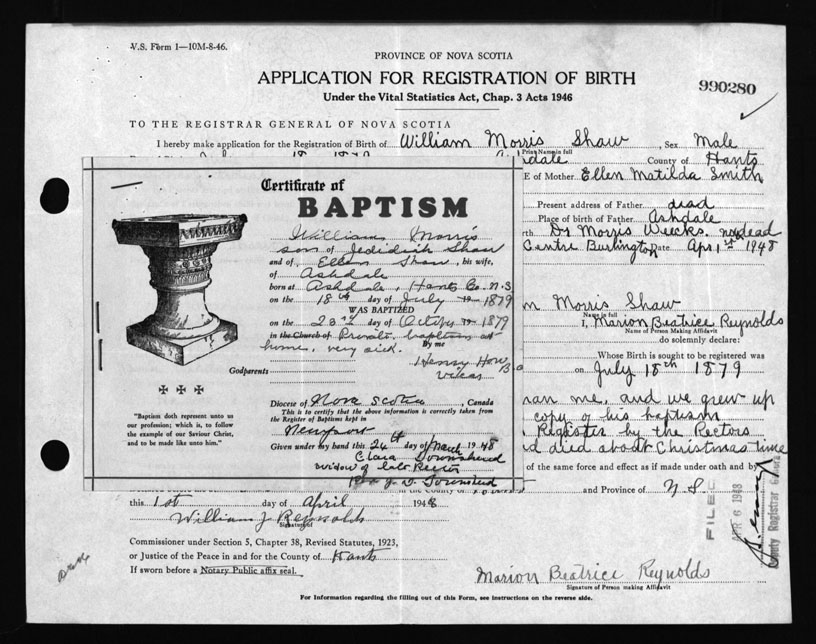 V.S. Form 1—10M-8-46.
PROVINCE OF NOVA SCOTIA
APPLICATION FOR REGISTRATION OF BIRTH
990280
Under the Vital Statistics Act, Chap. 3 Acts 1946
TO THE REGISTRAR GENERAL OF NOVA SCOTIA
I hereby make application for the Registration of Birth of William Morris Shaw, Sex Male
Print Name in full
County of Hants
of Mother Ellen Matilda Smith
Present address of Father dead
Place of birth of Father Ashdale
Dr Morris Weeks. now dead
Centre Burlington Date Apr 1st 1948
Morris Shaw
Name in full
I, Marion Beatrice Reynolds
Name of Person Making Affidavit
do solemnly declare:
Whose Birth is sought to be registered was
on July 18th 1879
me, and we grew up
copy of his baptism
Register by the Rectors
died about Christmas time
of the same force and effect as if made under oath and by
and Province of N S
Certificate of
BAPTISM
William Morris
son of Jedidiah Shaw
and of Ellen Shaw, his wife,
of Ashdale
born at Ashdale, Hants Co. N.S
on the 18th day of July 19 1879
WAS BAPTIZED
on the day of 19 1879
in the Church of Private baptism at
home, very sick. By me
Henry How B.a
Vicar
Godparents
Diocese of Nova Scotia, Canada
This is to certify that the above information is correctly taken
from the Register of Baptisms kept in
Newport
Given under my hand this 24th day of March 1948
Clara Townshend
widow of late Rector
"Baptism doth represent unto us
our profession; which is, to follow
the example of our Saviour Christ,
and to be made like unto him."
this 1st day of April 1948
William J Reynolds
Signature of
Commissioner under Section 5, Chapter 38, Revised Statutes, 1923,
or Justice of the Peace in and for the County of Hants
If sworn before a Notary Public affix seal.
Marion Beatrice Reynolds
Signature of Person making Affidavit
For Information regarding the filling out of this Form, see instructions on the reverse side.
FILED
APR 6 1948